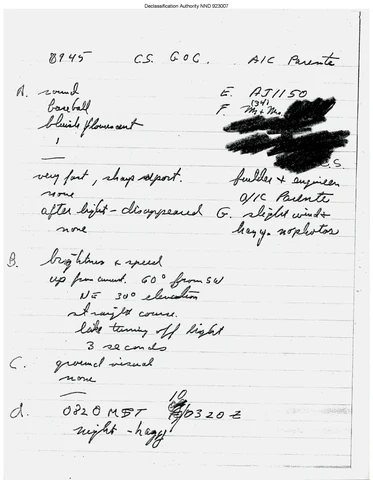 Declassification Authority NND 923007
0945 C.S. GOC. A/C Parente
A. round
baseball
bluish flourescent
1
—
very fast, sharp report.
none
after light - disappeared
none
E. AJ1150
F. Mr & Mrs.
C.S.
builder & engineer
O/C Parente
G. slight wind &
hazy. no photos
B. brightness & speed
up from 60° from SW
NE 30° elevation
straight course.
like turning off light
3 seconds
C. ground visual
none
—
d. 0820 MST 10/0320 Z
night - hazy